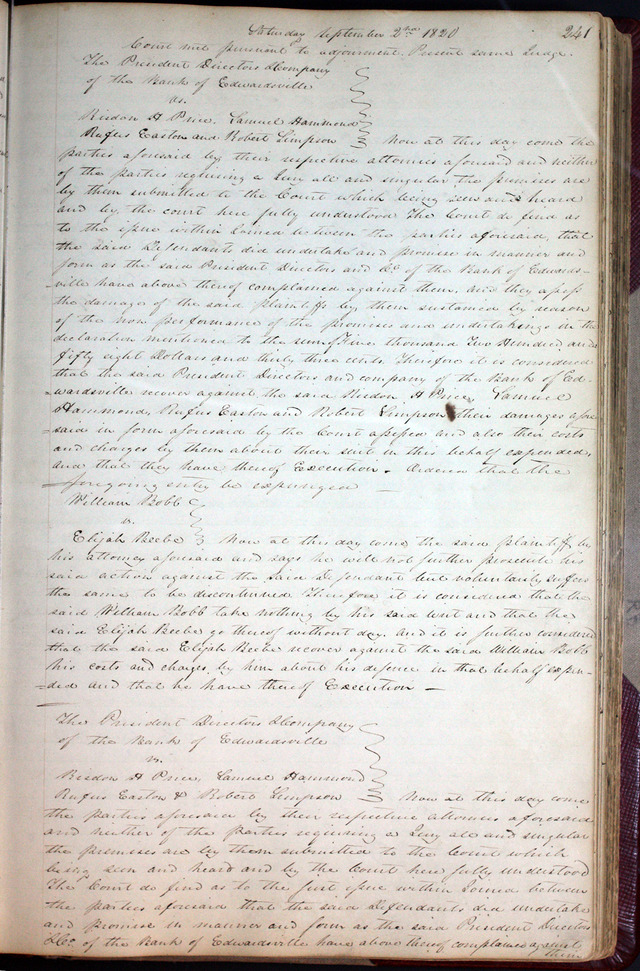 Saturday September 2nd 1820 241
Court met pursuant to adjournment. Present same Judge.
The President Directors & Company
of the Bank of Edwardsville
vs.
Risdon H Price, Samuel Hammond
Rufus Easton and Robert Simpson Now at this day come the
parties aforesaid by their respective attornies aforesaid and neither
of the parties requiring a Jury all and singular the premises are
by them submitted to the Court which being seen and heard
and by the court here fully understood The Court do find as
to the issue within Joined between the parties aforesaid, that
the said Defendants did undertake and promise in manner and
form as the said President Directors and Co of the Bank of Edwards-
ville have above thereof complained against them, and they assess
the damage of the said plaintiffs by them sustained by reason
of the non performance of the promises and undertakings in the
declaration mentioned to the sum of thousand Two Hundred and
fifty eight Dollars and thirty three cents Therefore it is considered
that the said President Directors and company of the Bank of Ed-
wardsville recover against the said Risdon H Price, Samuel
Hammond, Rufus Easton and Robert Simpson their damages afore
said in form aforesaid by the Court assessed and also their costs
and charges by them about their suit in this behalf expended,
and that they have thereof Execution. Ordered that the
foregoing entry be expunged
William Bobb
vs.
Elijah Beebe Now at this day come the said plaintiff by
his attorney aforesaid and says he will not further prosecute his
said action against the said Defendant but voluntarily suffers
the same to be discontinued Therefore it is considered that the
said William Bobb take nothing by his said writ and that the
said Elijah Beebe go thereof without day. And it is further considered
that the said Elijah Beebe recover against the said William Bobb
his costs and charges by him about his defence in that behalf expen-
ded and that he have thereof Execution —
The President Directors & Company
of the Bank of Edwardsville
vs.
Risdon H Price, Samuel Hammond
Rufus Easton & Robert Simpson Now at this day come
the parties aforesaid by their respective attornies aforesaid
and neither of the parties requiring a Jury all and singular
the premises are by them submitted to the Court which
being seen and heard and by the Court here fully understood
The Court do find as to the first issue within Joined between
the parties aforesaid that the said Defendants did undertake
and promise in manner and form as the said President Directors
& Co. of the Bank of Edwardsville have above thereof complained against
them